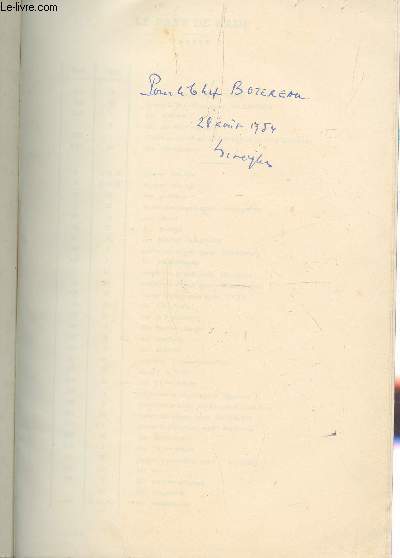 © Le-livre.com
Pour le Chef BOTEREAU
28 août 1954